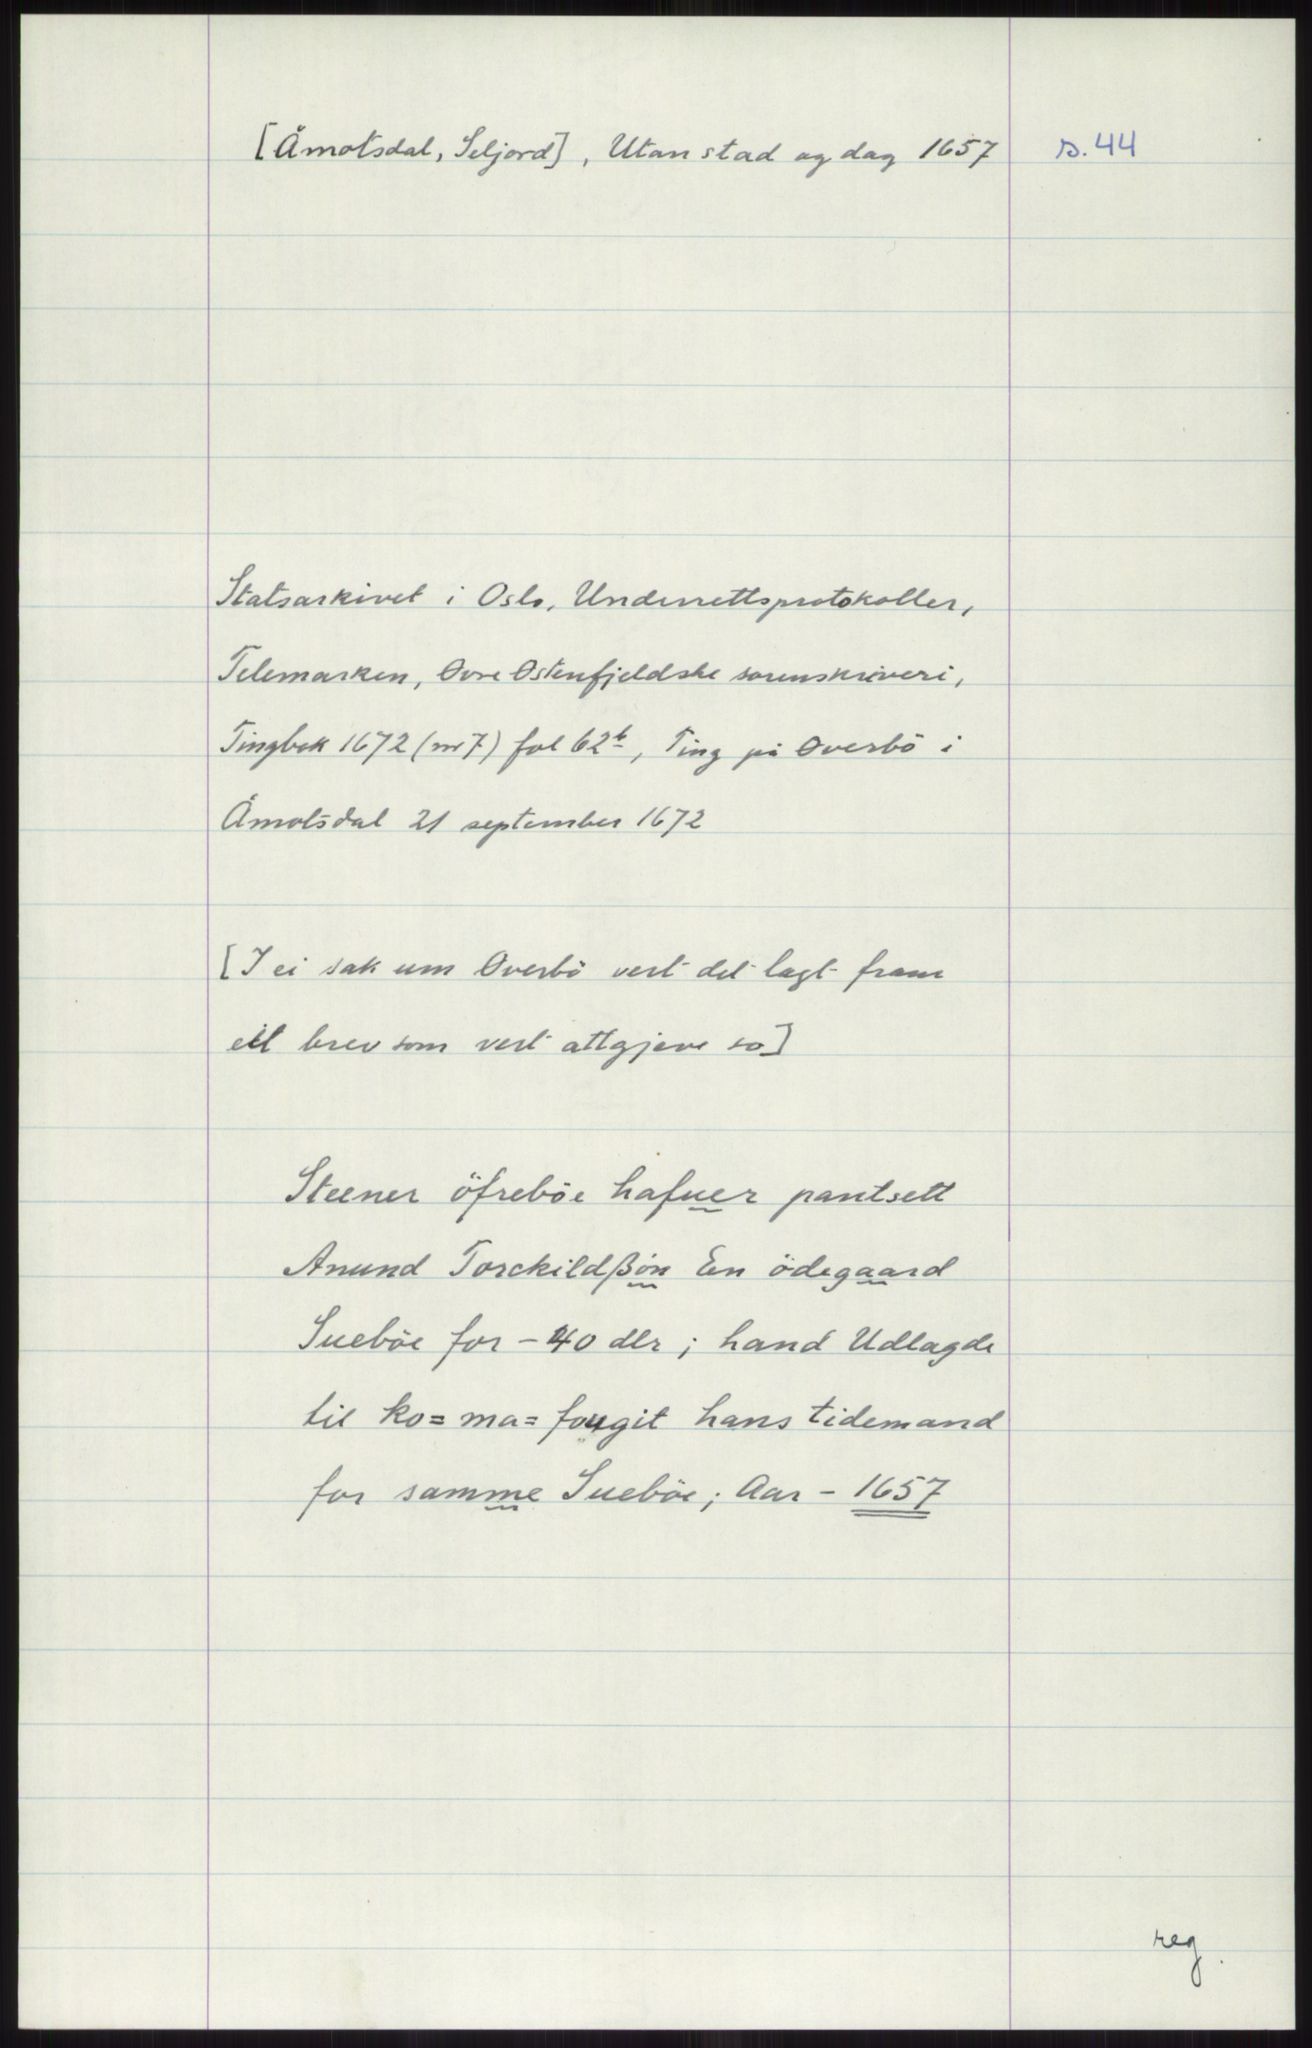 [Åmotsdal, Seljord], Utan stad og dag 1657
s. 44
Statsarkivet i Oslo, Underrettsprotokoller,
Telemarken, Øvre Østenfjeldske sorenskriveri,
Tingbok 1672 (nr 7) fol 62b, Ting på Øverbö i
Åmotsdal 21 september 1672
[I ei sak um Øverbö vert det lagt fram
eit brev som vert attgjeve so]
Steener öfreböe hafuer pantsett
Anund Torckildßön En ödegaard
Sueböe for - 40 dlr ; hand Udlagde
til ko= ma= fougit hans tidemand
for samme Sueböe ; Aar - 1657
reg.